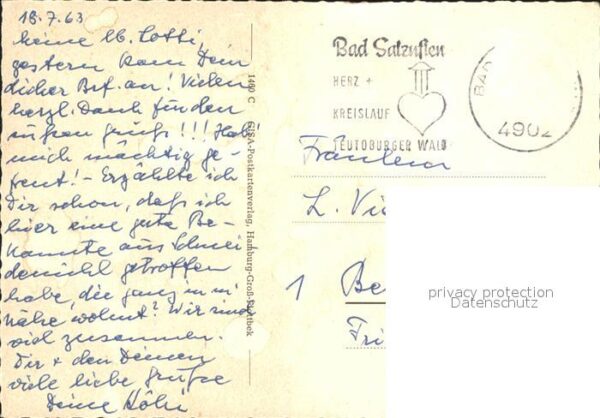 18.7.63
Meine lb. Lotti,
gestern kam Dein
lieber Brf. an! Vielen
herzl. Dank für den
süssen Gruß!!! Hat
mich mächtig ge-
freut! - Erzählte ich
Dir schon, daß ich
hier eine gute Be-
kannte aus Schnei
demühl getroffen
habe, die ganz in m
Nähe wohnt? Wir sind
viel zusammen.
Dir + den Deinen
viele liebe Grüße
Deine
1469 C GISA-Postkartenverlag, Hamburg-Groß-Flottbek
Bad Salzuflen
HERZ +
KREISLAUF
TEUTOBURGER WALD
BAD
4902
Fräulein
L. Vi
1 Be
Fri
privacy protection
Datenschutz